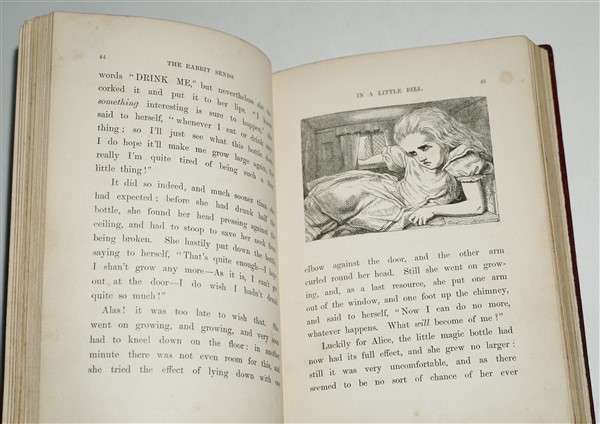 44
THE RABBIT SENDS
words "DRINK ME," but nevertheless she
corked it and put it to her lips. "I
something interesting is sure to happen," she
said to herself, "whenever I eat or drink
thing; so I'll just see what this bottle does.
I do hope it'll make me grow large again,
really I'm quite tired of being such a tiny
little thing!"
It did so indeed, and much sooner than she
had expected: before she had drunk half the
bottle, she found her head pressing against the
ceiling, and had to stoop to save her neck from
being broken. She hastily put down the bottle,
saying to herself, "That's quite enough—I hope
I shan't grow any more—As it is, I can't get
out at the door—I do wish I hadn't drunk
quite so much!"
Alas! it was too late to wish that. She
went on growing, and growing, and very soon
had to kneel down on the floor: in another
minute there was not even room for this, and
she tried the effect of lying down with one
IN A LITTLE BILL.
45
elbow against the door, and the other arm
curled round her head. Still she went on grow-
ing, and, as a last resource, she put one arm
out of the window, and one foot up the chimney,
and said to herself, "Now I can do no more,
whatever happens. What will become of me?"
Luckily for Alice, the little magic bottle had
now had its full effect, and she grew no larger:
still it was very uncomfortable, and as there
seemed to be no sort of chance of her ever